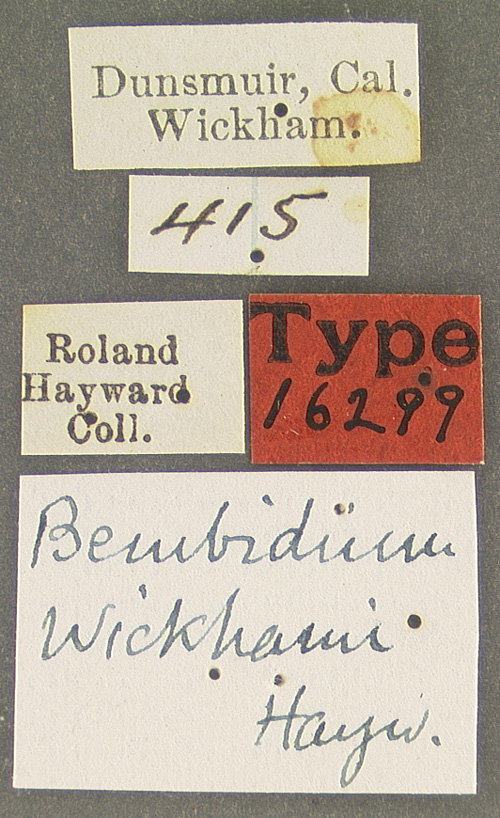 Dunsmuir, Cal.
Wickham.
415
Roland
Hayward
Coll.
Type
16299
Bembidium
Wickhami
Hayw.